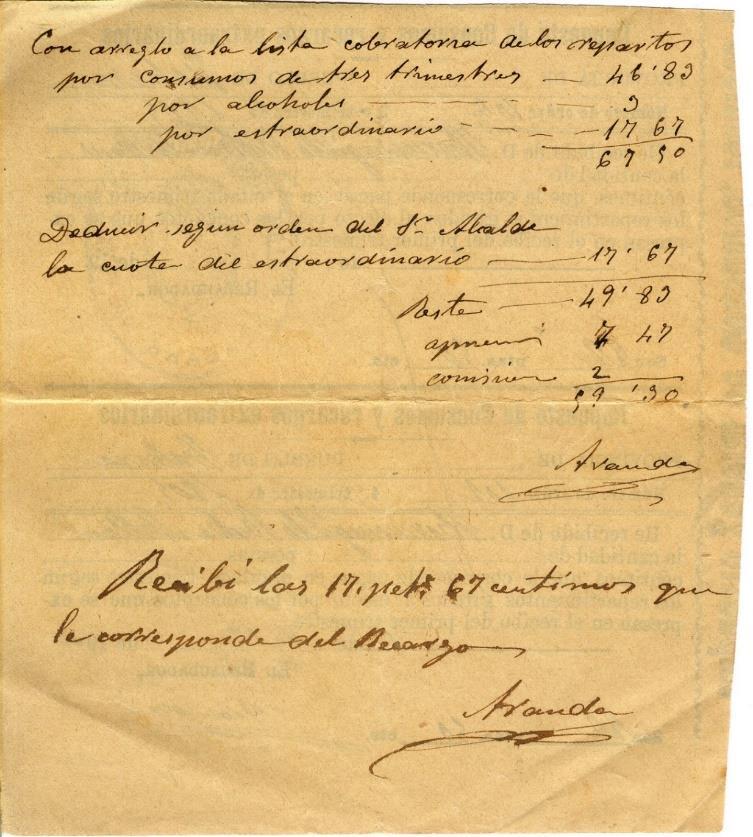 Con arreglo a la lista cobratorea de los repartos
por consumos de tres trimestres — 46'83
por alcoholes — 3
por estraordinario — 17 67
67 50
Deducir segun orden del Sr Alcalde
la cuote del estraordinario — 17'67
Reste — 49'83
apremi 7 47
comisien 2
59'30
Aranda
Recibí las 17. pets 67 centimos que
le corresponde del Recargo
Aranda